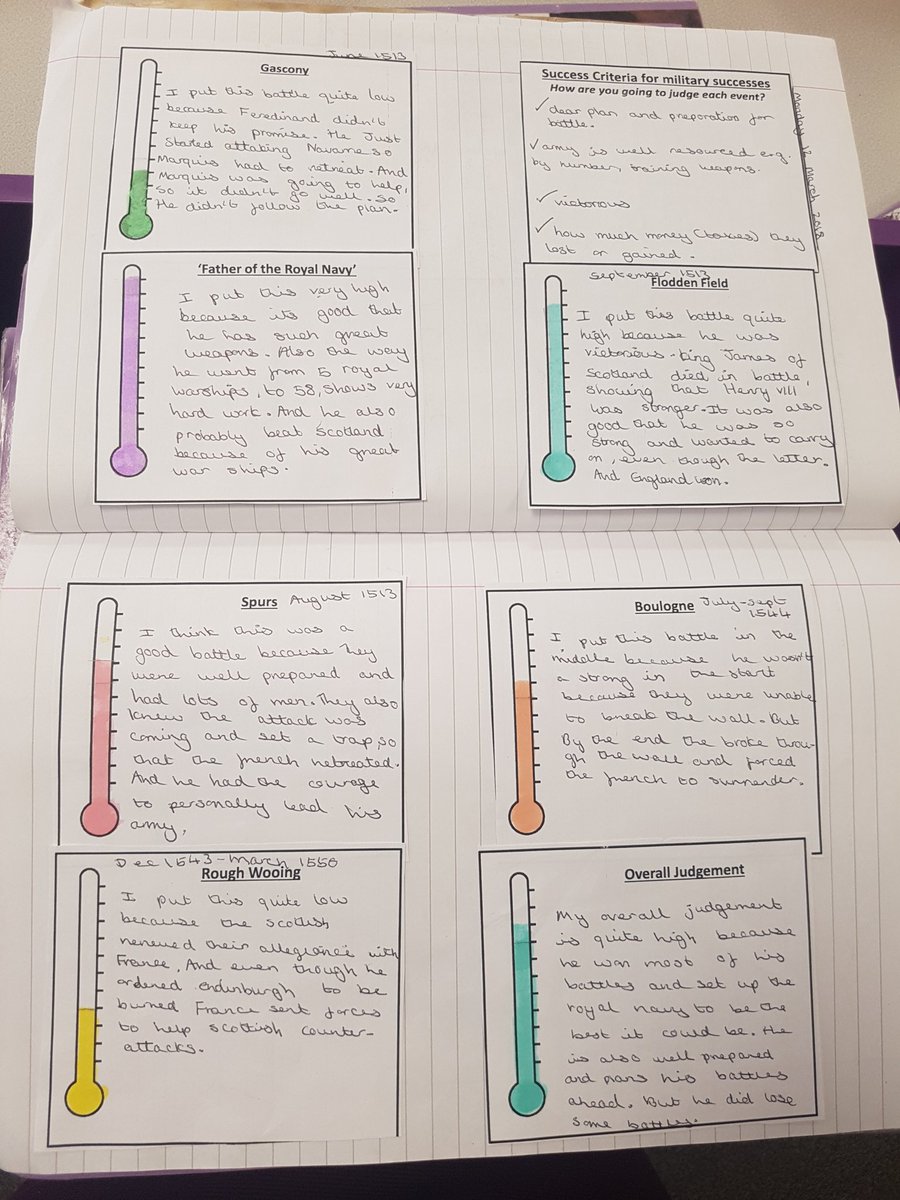 June 1513
Gascony
I put this battle quite low
because Feredinand didn't
keep his promise. He Just
started attaking Navarne so
Marquis had to retreat. And
Marquis was going to help,
so it didn't go well. So
He didn't follow the plan.
Success Criteria for military successes
How are you going to judge each event?
✓ clear plan and preporation for
battle.
✓ army is well resourced e.g.
by number, training weapons.
✓ victorious
✓ how much money (taxes) they
lost or gained.
Monday 12 March 2018
'Father of the Royal Navy'
I put this very high
because its good that
he has such great
weapons. Also the way
he went from 5 royal
warships, to 58, shows very
hard work. And he also
probably beat Scotland
because of his great
war ships.
September 1513
Flodden Field
I put this battle quite
high because he was
victorious - king James of
Scotland died in battle,
showing that Henry VIII
was stronger. It was also
good that he was so
strong and wanted to carry
on, even though the letter.
And England won.
Spurs August 1513
I think this was a
good battle because they
were well prepared and
had lots of men. They also
knew the attack was
coming and set a trap, so
that the french retreated.
And he had the courage
to personally lead his
army,
Boulogne July-sept
1544
I put this battle in the
middle because he wasn't
a strong in the start
because they were unable
to break the wall. But
By the end the broke throu-
gh the wall and forced
the french to surrender.
Dec 1543 - March 1550
Rough Wooing
I put this quite low
because the scottish
renewed their allegiance with
France, And even though he
ordered Endinburgh to be
burned France sent forces
to help scottish counter-
attacks.
Overall Judgement
My overall judgement
is quite high because
he won most of his
battles and set up the
royal navy to be the
best it could be. He
is also well prepared
and plans his battles
ahead. But he did lose
some battles.